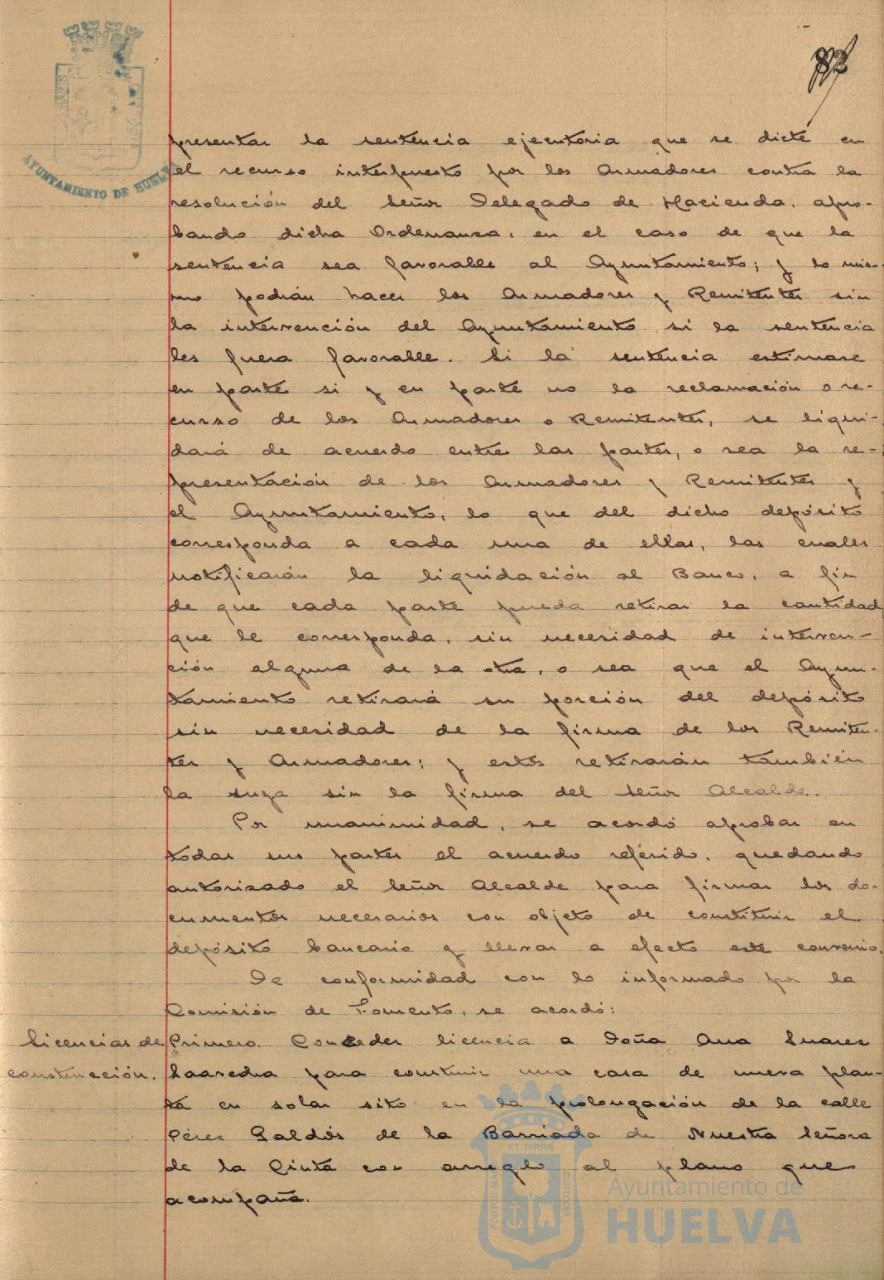 82
AYUNTAMIENTO DE HUELVA
presentar la sentencia ejecutoria que se dicte en
el recurso interpuesto por los Armadores contra la
resolución del Señor Delegado de Hacienda, apro-
bando dicha Ordenanza, en el caso de que la
sentencia sea favorable al Ayuntamiento; y lo mis-
mo podrán hacer los Armadores y Remitentes sin
la intervención del Ayuntamiento si la sentencia
les fuera favorable. Si la sentencia estimase
en parte si y en parte no la reclamación o re-
curso de los Armadores o Remitentes, se liqui-
dará de acuerdo entre las partes, o sea la re-
presentación de los Armadores y Remitentes y
el Ayuntamiento, lo que del dicho depósito
corresponda a cada una de ellas, las cuales
notificarán la liquidación al Banco, a fin
de que cada parte pueda retirar la cantidad
que le corresponda, sin necesidad de interven-
ción alguna de la otra, o sea que el Ayun-
tamiento retirará su porción del depósito
sin necesidad de la firma de los Remiten-
tes y Armadores; y estos retirarán también
la suya sin la firma del Señor Alcalde.
Por unanimidad, se acordó aprobar en
todas sus partes el acuerdo referido, quedando
autorizado el Señor Alcalde para firmar los do-
cumentos necesarios con objeto de constituir el
depósito bancario y llevar a efecto este convenio.
De conformidad con lo informado por la
Comisión de Fomento, se acordó:
Licencias de
construcción.
Primero. Conceder licencia a Doña Ana Suarez
Saavedra para construir una casa de nueva plan-
ta en solar sito en la prolongación de la calle
Pérez Galdós de la Barriada de Nuestra Señora
de la Cinta con arreglo al plano que
acompaña.
Ayuntamiento de
HUELVA